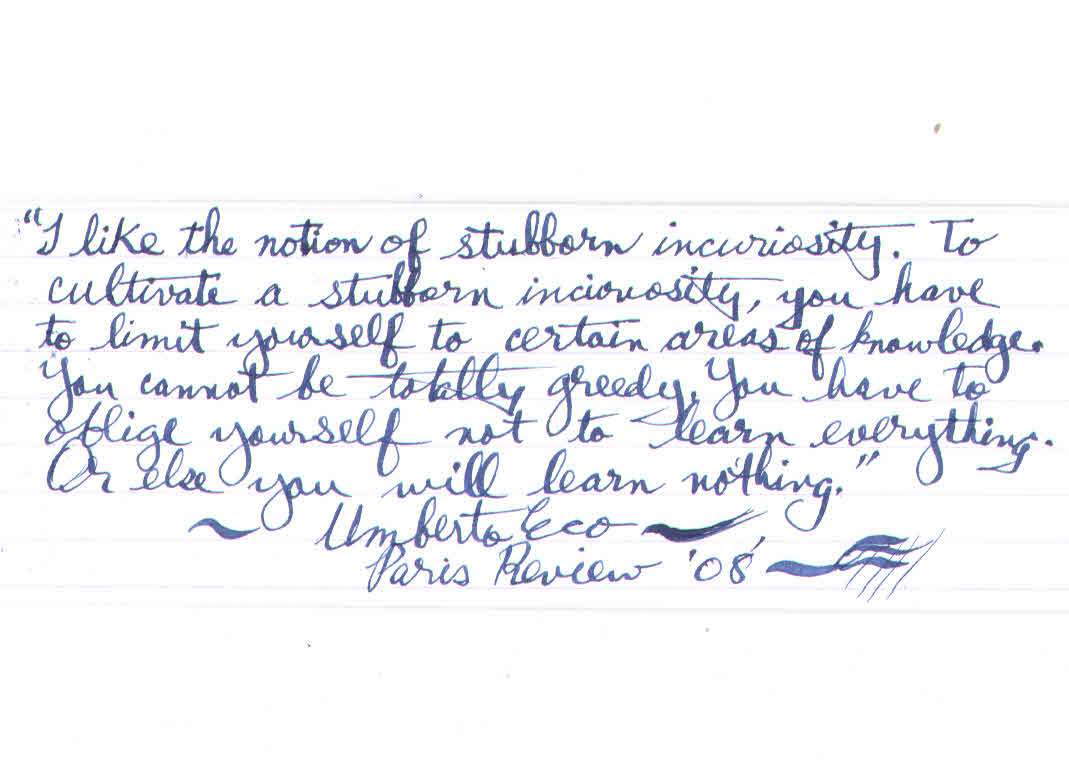 "I like the notion of stubborn incuriosity. To
cultivate a stubborn incioriosity, you have
to limit yourself to certain areas of knowledge.
You cannot be totally greedy. You have to
oblige yourself not to learn everything.
Or else you will learn nothing."
Umberto Eco
Paris Review '08